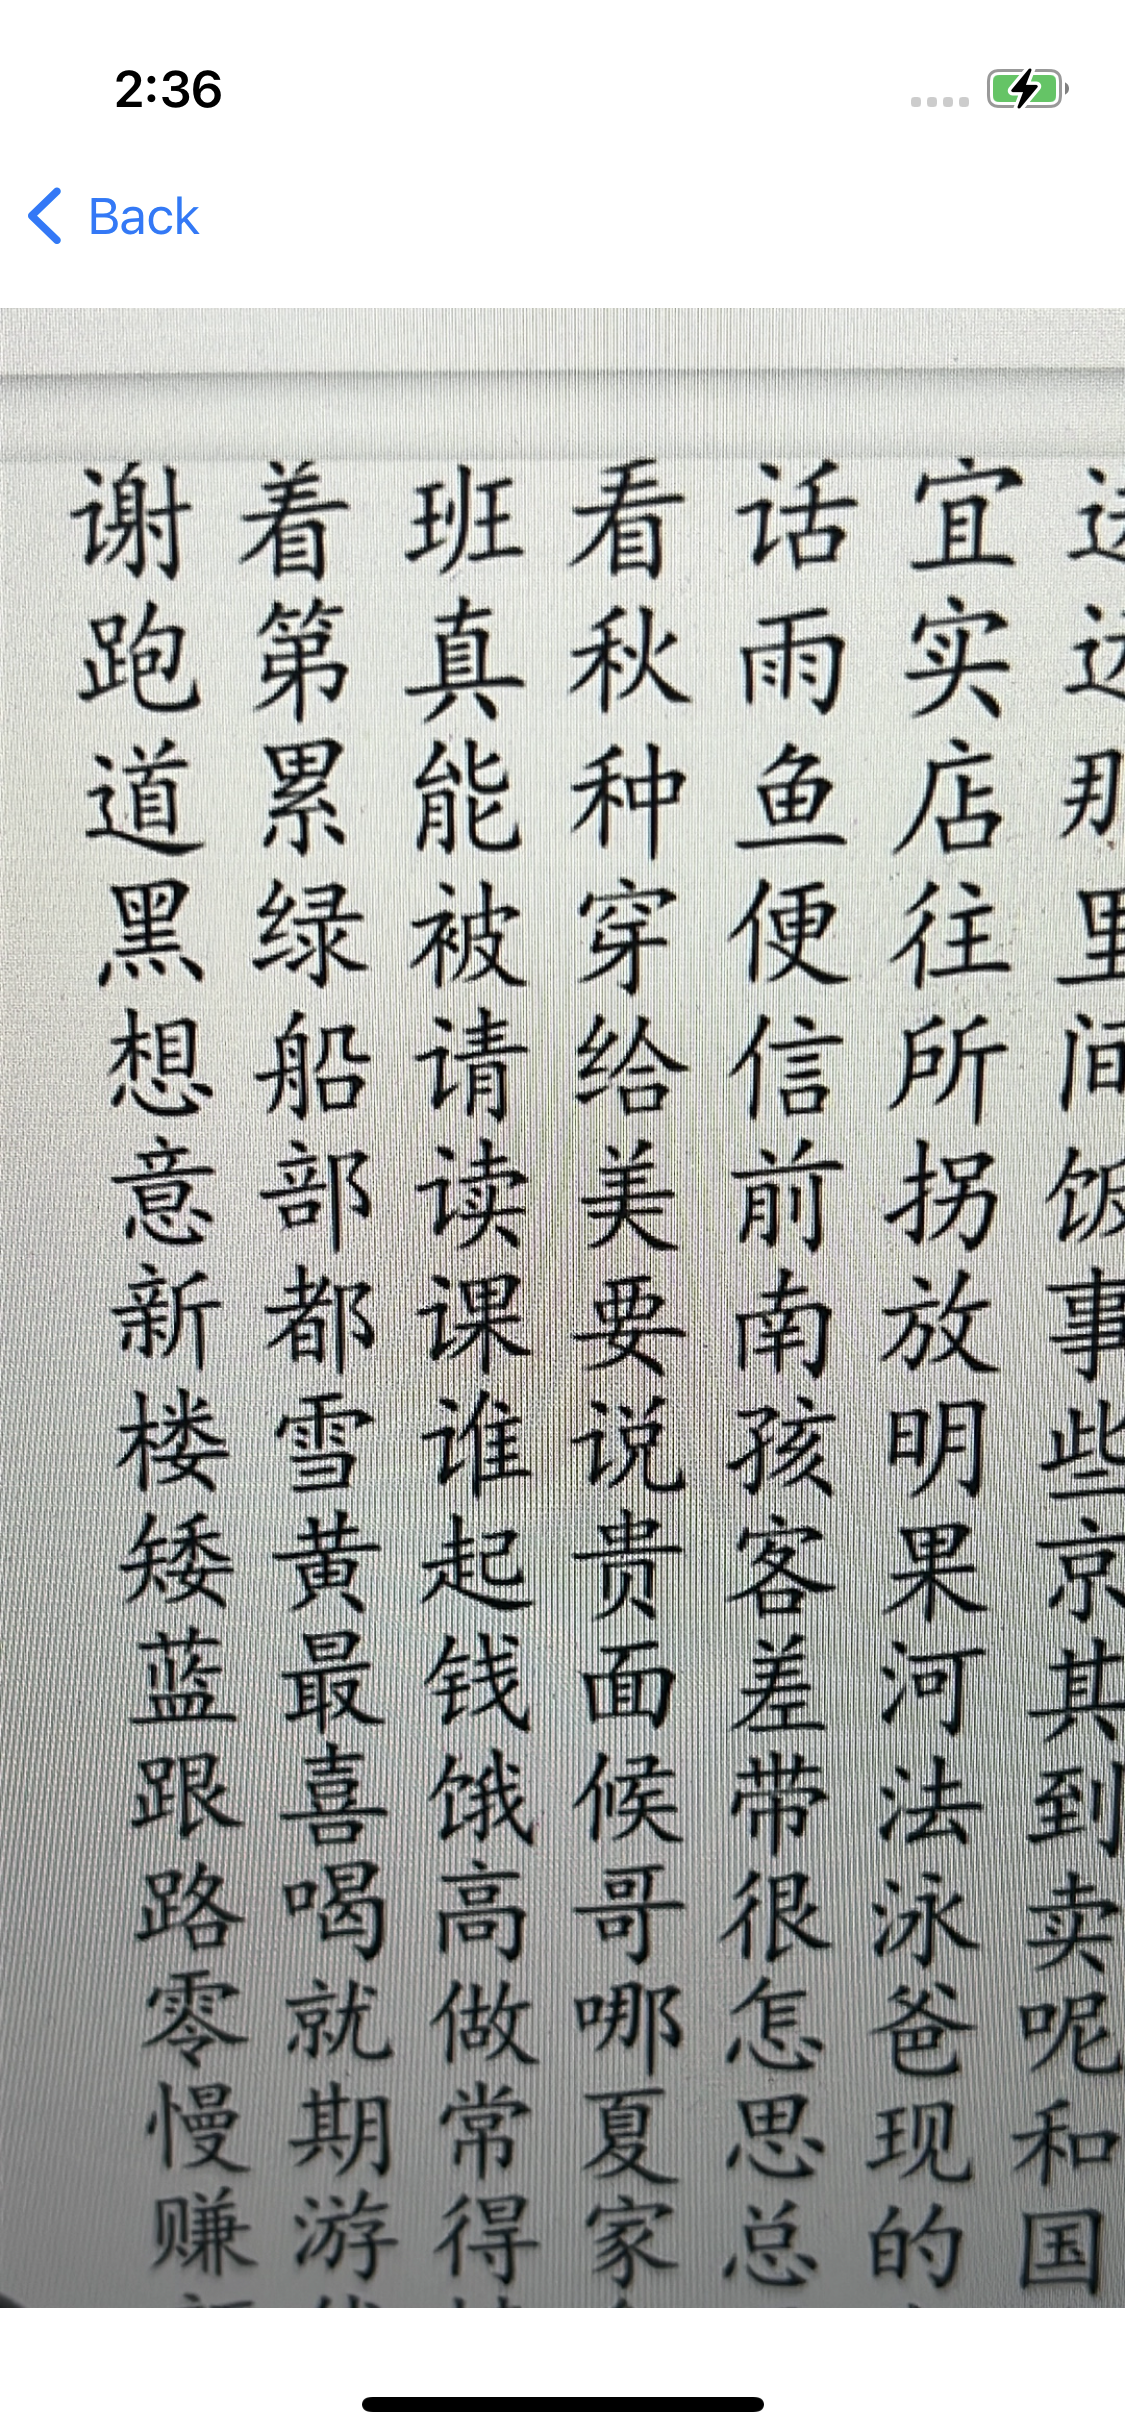 2:36
Back
谢 着 班 看 话 宜
跑 第 真 秋 雨 实
道 累 能 种 鱼 店 那
黑 绿 被 穿 便 往 里
想 船 请 给 信 所 间
意 部 读 美 前 拐 饭
新 都 课 要 南 放 事
楼 雪 谁 说 孩 明 些
矮 黄 起 贵 客 果 京
蓝 最 钱 面 差 河 其
跟 喜 饿 候 带 法 到
路 喝 高 哥 很 泳 卖
零 就 做 哪 怎 爸 呢
慢 期 常 夏 思 现 和
赚 游 得 家 总 的 国